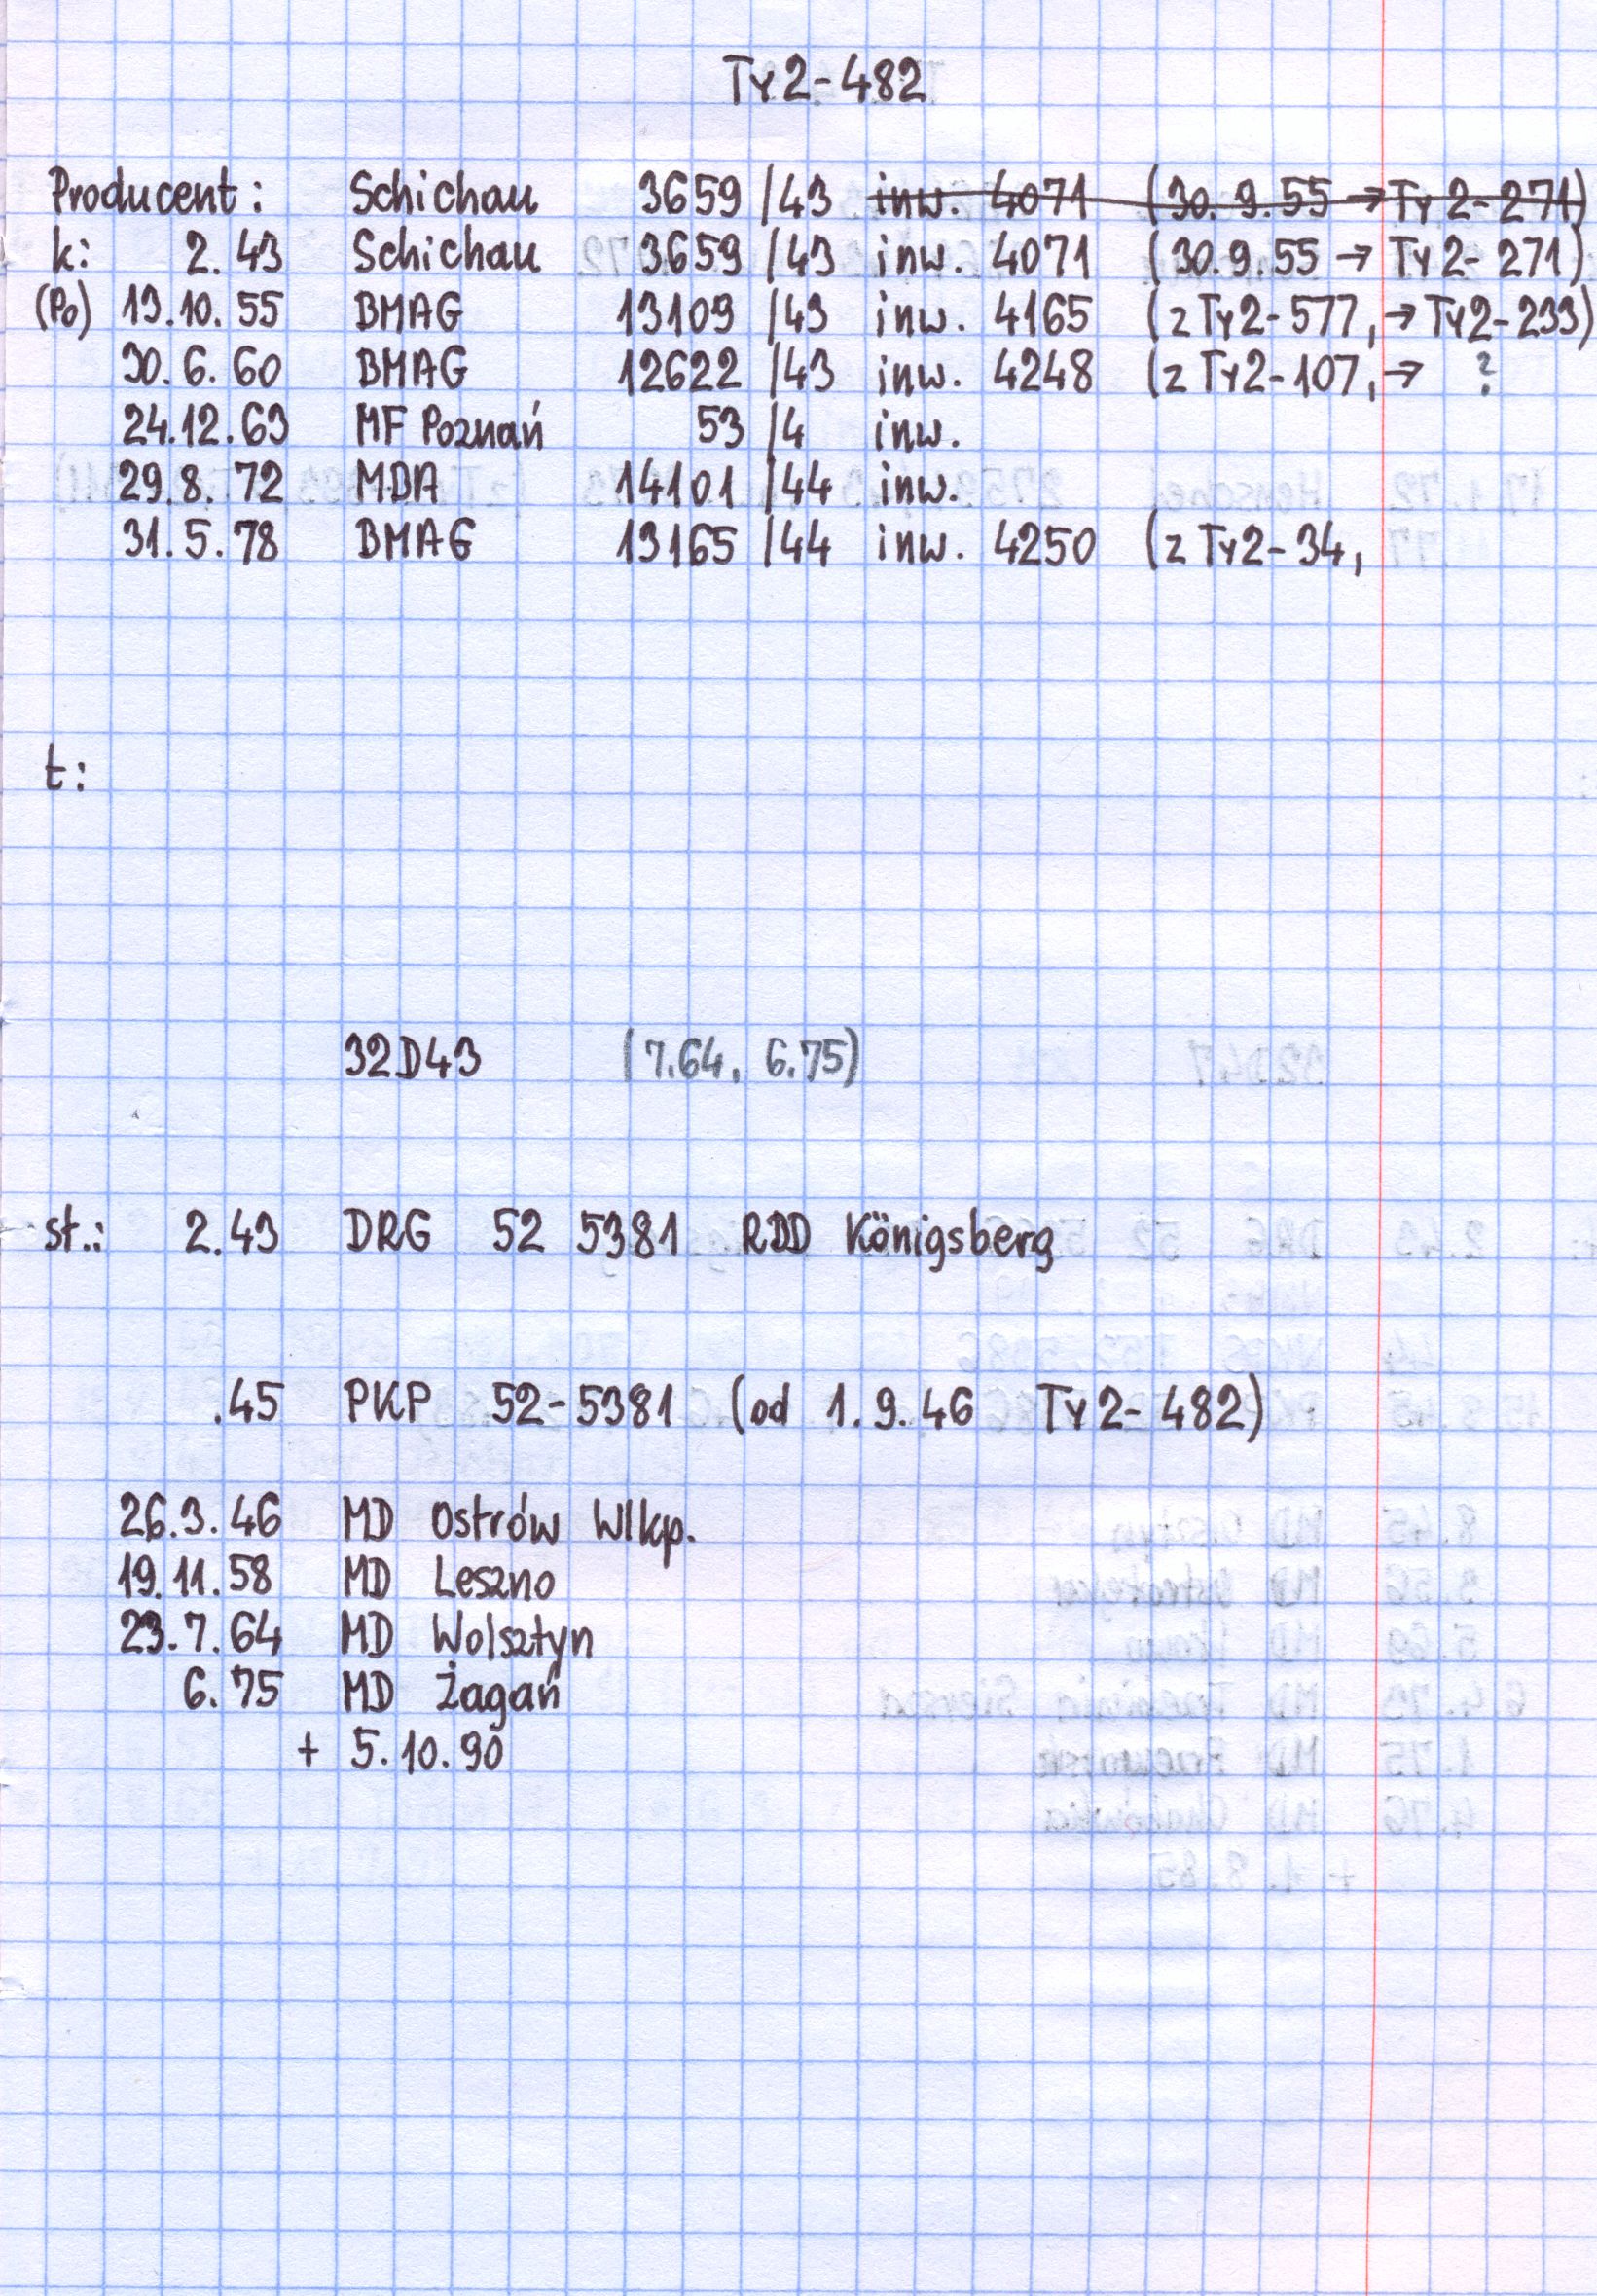 Ty2-482
Producent: Schichau 3659/43 inw. 4071 (30.9.55 → Ty2-271)
k: 2.43 Schichau 3659/43 inw. 4071 (30.9.55 → Ty2-271)
(Po) 19.10.55 BMAG 13109/43 inw. 4165 (z Ty2-577, → Ty2-233)
30.6.60 BMAG 12622/43 inw. 4248 (z Ty2-107, → ?
24.12.69 MF Poznań 53/4 inw.
29.8.72 MBA 14101/44 inw.
31.5.78 BMAG 13165/44 inw. 4250 (z Ty2-34,
t:
32D43 (7.64, 6.75)
st.: 2.43 DRG 52 5381 RBD Königsberg
.45 PKP 52-5381 (od 1.9.46 Ty2-482)
26.3.46 MD Ostrów Wlkp.
19.11.58 MD Leszno
23.7.64 MD Wolsztyn
6.75 MD Żagań
+ 5.10.90